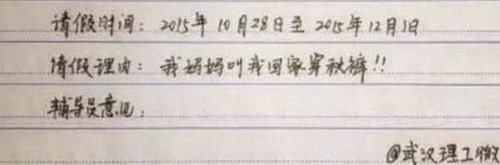 请假时间：2015年10月28日至2015年12月1日
请假理由：我妈妈叫我回家穿秋裤!!
辅导员意见：
@武汉理工